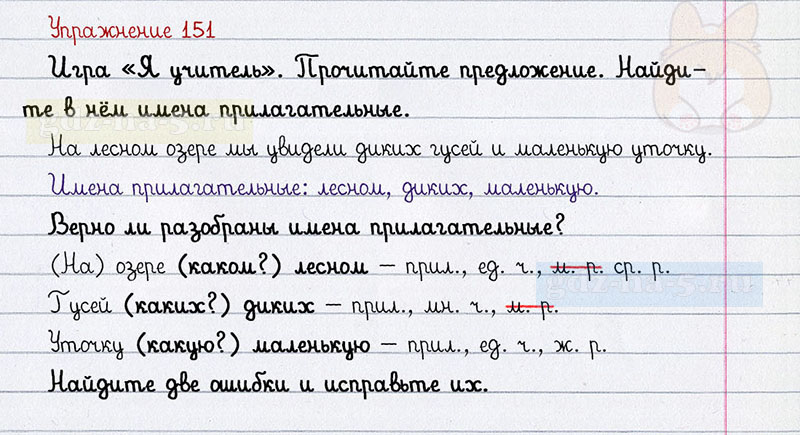 Упражнение 151
Игра «Я учитель». Прочитайте предложение. Найди-
те в нём имена прилагательные.
На лесном озере мы увидели диких гусей и маленькую уточку.
Имена прилагательные: лесном, диких, маленькую.
Верно ли разобраны имена прилагательные?
(На) озере (каком?) лесном – прил., ед. ч., м. р. ср. р.
Гусей (каких?) диких – прил., мн. ч., м. р.
Уточку (какую?) маленькую – прил., ед. ч., ж. р.
Найдите две ошибки и исправьте их.
gdz-na-5.ru
gdz-na-5.ru